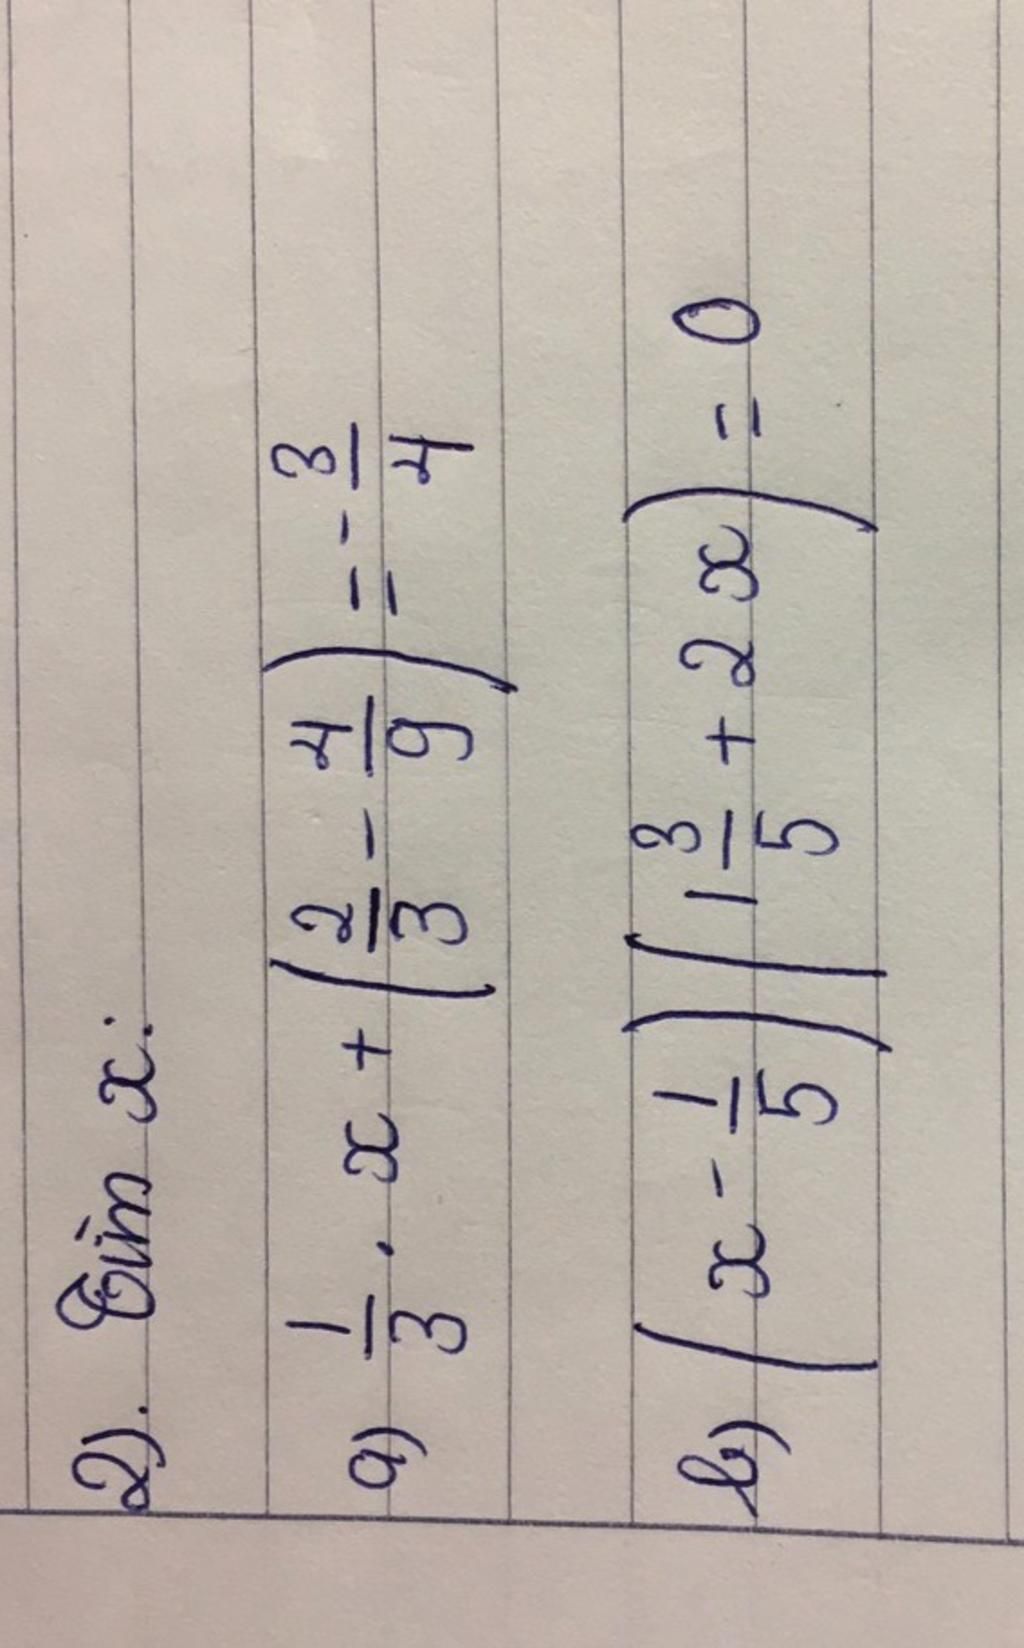 2). Tìm x:
a) 1/3 . x + (2/3 - 4/9) = - 3/4
b) (x - 1/5)(1 3/5 + 2x) = 0